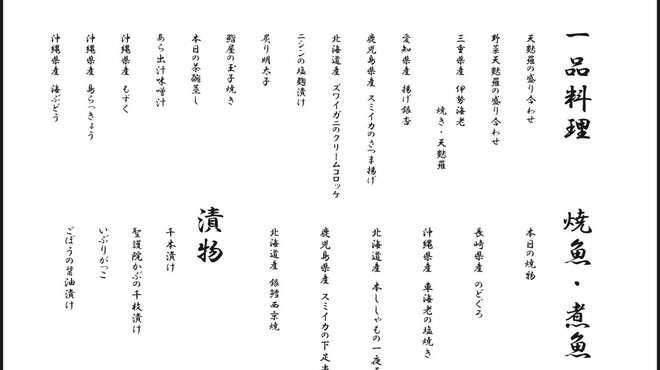 一品料理
天麩羅の盛り合わせ
野菜天麩羅の盛り合わせ
三重県産 伊勢海老
焼き・天麩羅
愛知県産 揚げ銀杏
鹿児島県産 スミイカのさつま揚げ
北海道産 ズワイガニのクリームコロッケ
ニシンの塩麹漬け
炙り明太子
鮨屋の玉子焼き
本日の茶碗蒸し
あら出汁味噌汁
沖縄県産 もずく
沖縄県産 島らっきょう
沖縄県産 海ぶどう
焼魚・煮魚
本日の焼物
長崎県産 のどぐろ
沖縄県産 車海老の塩焼き
北海道産 本ししゃもの一夜
鹿児島県産 スミイカの下足
北海道産 銀鱈西京焼
漬物
千本漬け
聖護院かぶの千枚漬け
いぶりがっこ
ごぼうの醤油漬け